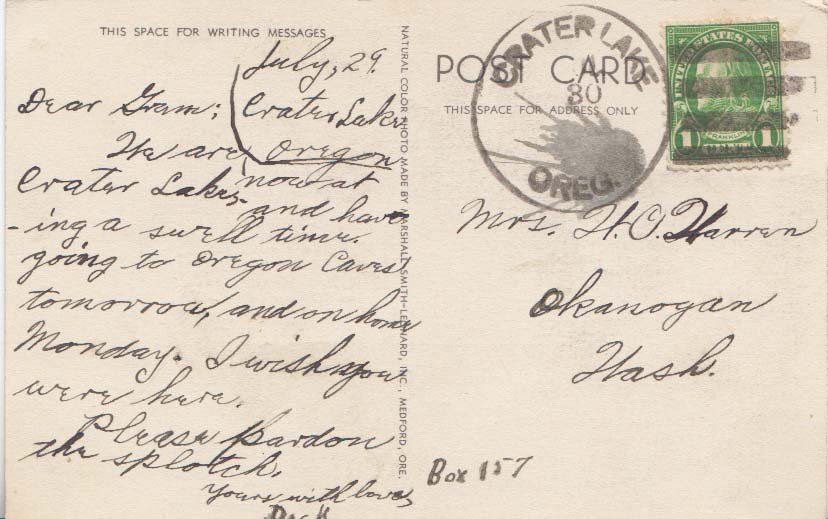 THIS SPACE FOR WRITING MESSAGES
July, 29.
Crater Lake
Oregon
Dear Gram;
We are now at
Crater Lake, and hav-
-ing a swell time.
going to Oregon Caves
tomorrow, and on home
Monday. I wish you
were here.
Please pardon
the splotch.
Yours with love,
Dick
NATURAL COLOR PHOTO MADE BY MARSHALL SMITH-LEONARD, INC., MEDFORD, ORE.
POST CARD
THIS SPACE FOR ADDRESS ONLY
CRATER LAKE
30
OREG.
UNITED STATES POSTAGE
FRANKLIN
1 1
Mrs. H. O. Warren
Okanogan
Wash.
Box 157